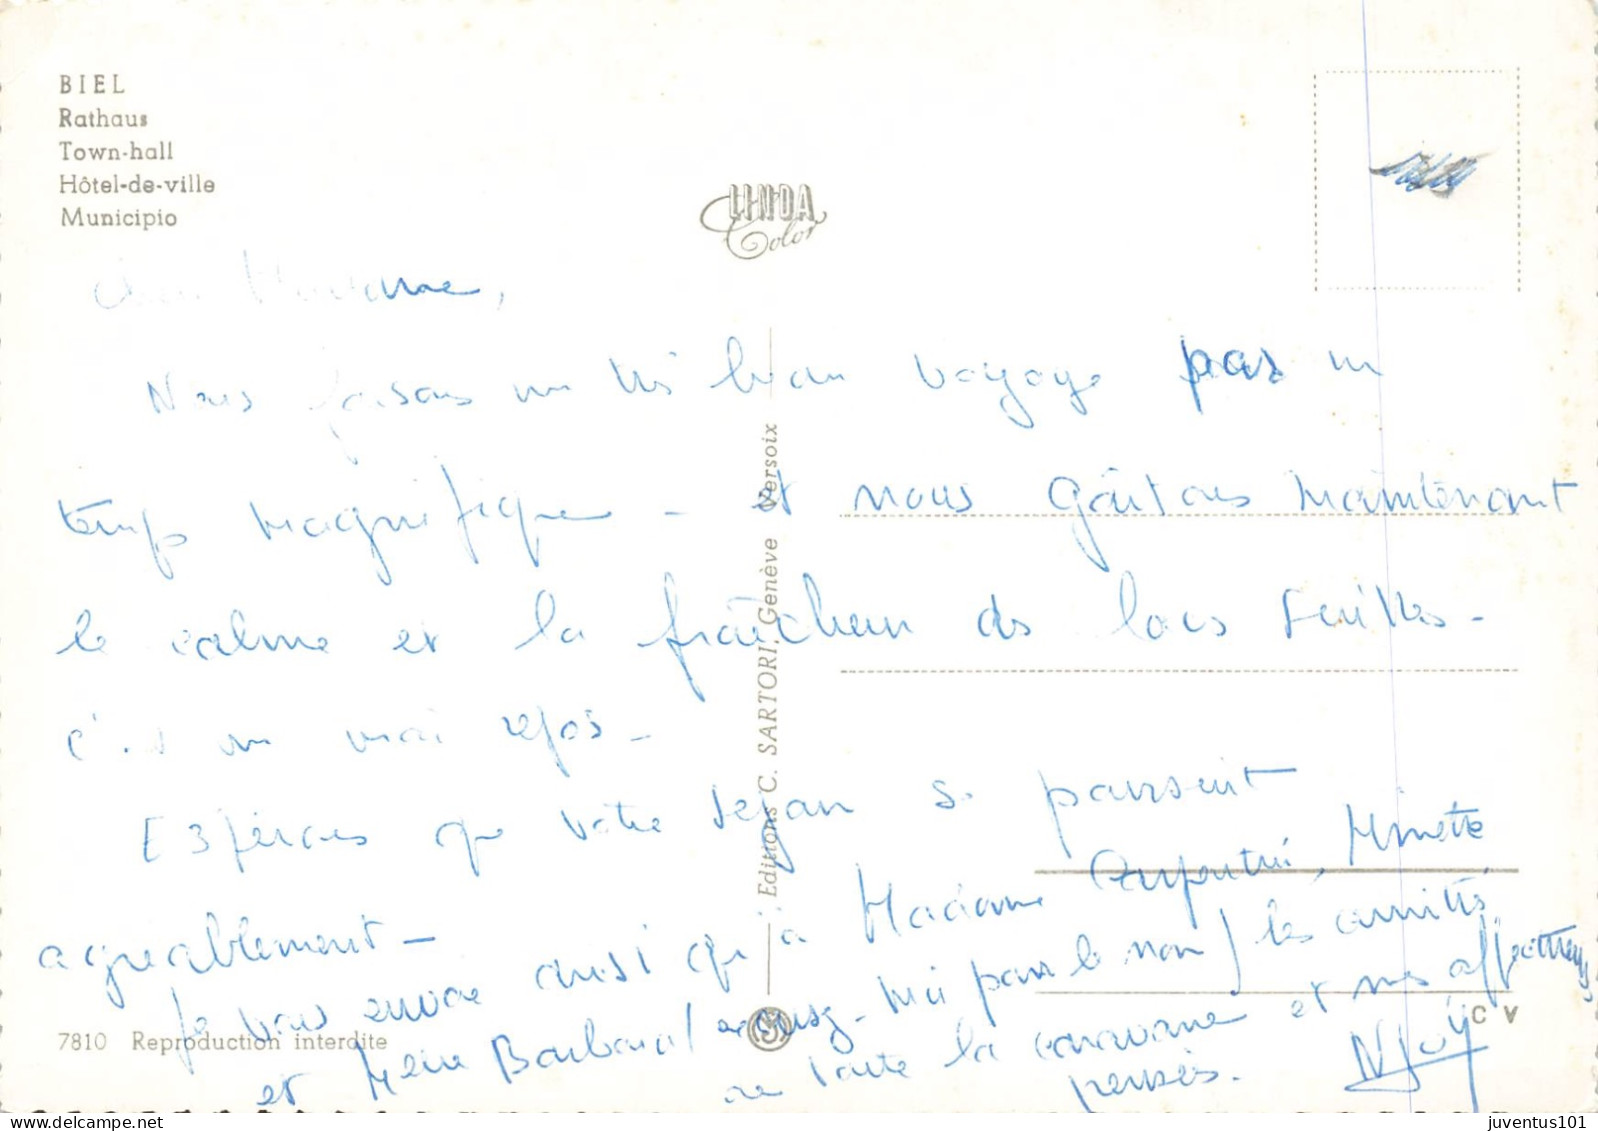 BIEL
Rathaus
Town-hall
Hôtel-de-ville
Municipio
LINDA
Color
Madame,
Nous faisons un très beau voyage par un
temps magnifique - et nous goûtons maintenant
le calme et la fraîcheur des lacs suisses -
C'est un vrai repos -
Espérons que votre séjour se poursuit
agréablement -
Je vous envoie ainsi qu'à Madame Minette
et Barbara / excusez-moi pour le nom / les amitiés
de toute la caravane et mes affectueuses
pensées.
Editions C. SARTORI, Genève Versoix
7810 Reproduction interdite
C V
juventus101